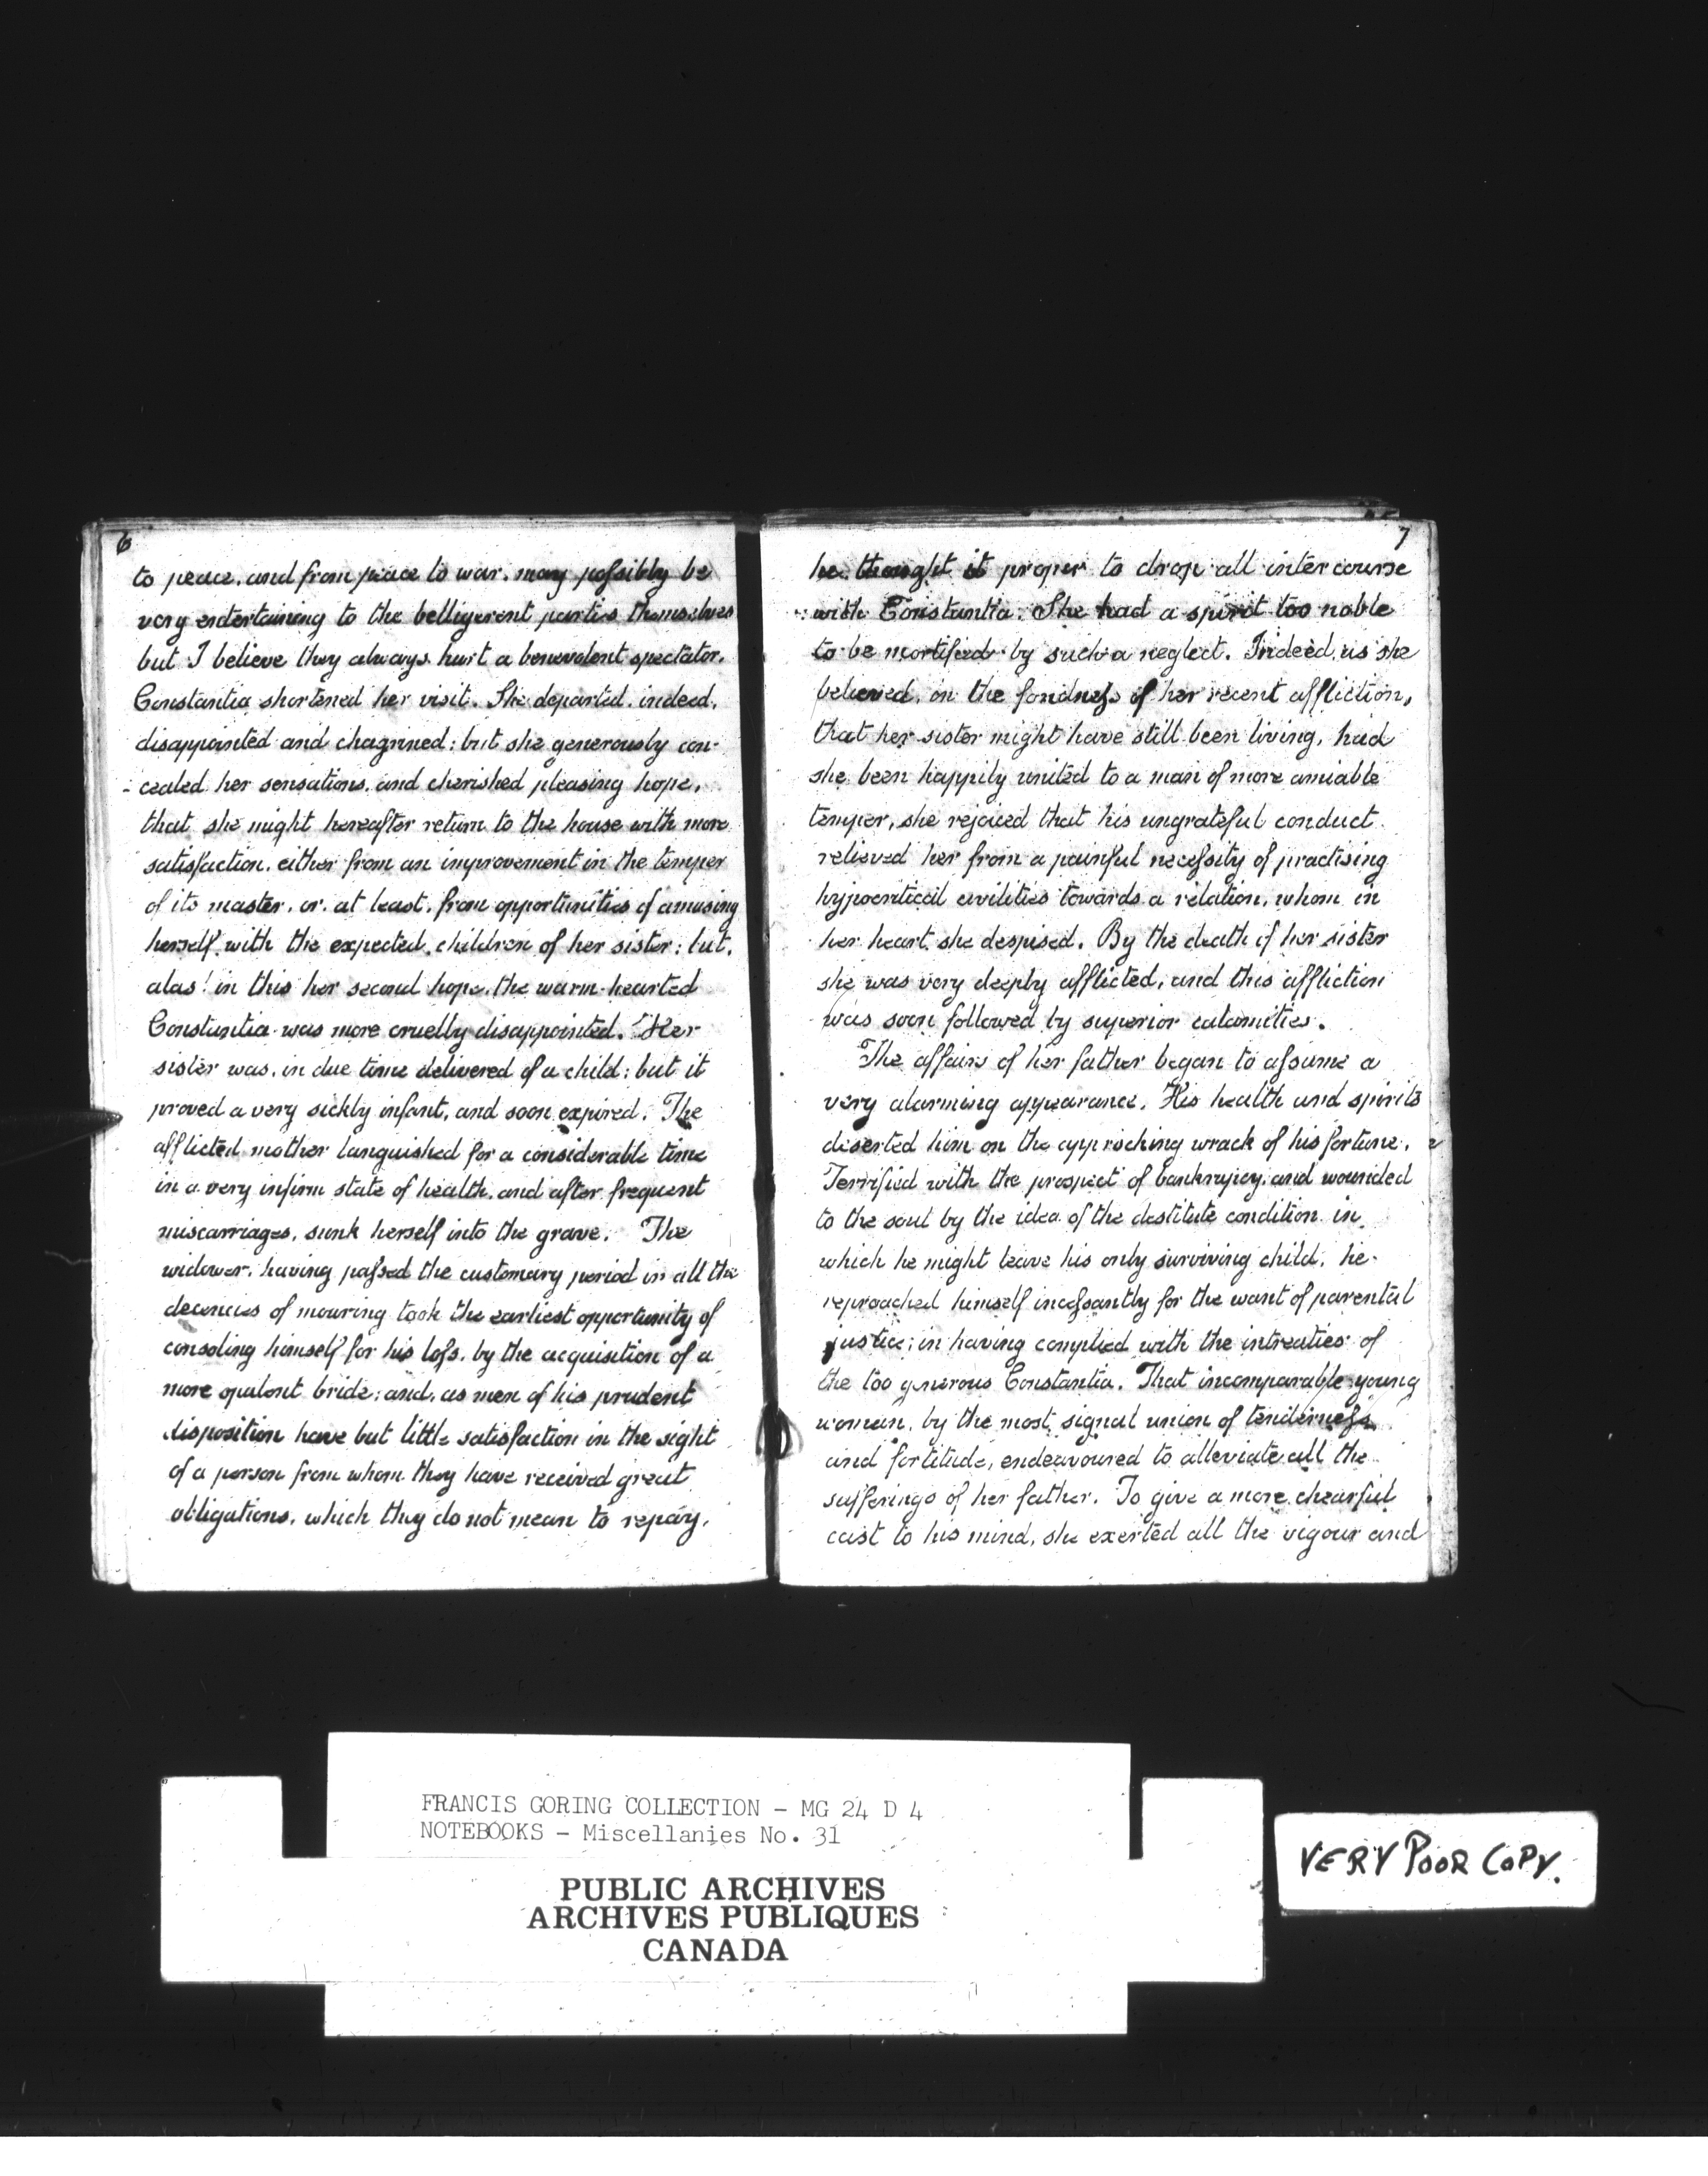 6
to peace, and from peace to war, may possibly be
very entertaining to the belligerent parties themselves
but I believe they always hurt a benevolent spectator.
Constantia shortened her visit. She departed, indeed,
disappointed and chagrined; but she generously con-
-cealed her sensations, and cherished pleasing hope,
that she might hereafter return to the house with more
satisfaction, either from an improvement in the temper
of its master, or, at least, from opportunities of amusing
herself with the expected children of her sister: but,
alas! in this her second hope, the warm-hearted
Constantia was more cruelly disappointed. Her
sister was, in due time delivered of a child: but it
proved a very sickly infant, and soon expired. The
afflicted mother languished for a considerable time
in a very infirm state of health, and after frequent
miscarriages, sunk herself into the grave. The
widower, having passed the customary period in all the
decencies of mouring took the earliest opportunity of
consoling himself for his loss, by the acquisition of a
more opulent bride; and, as men of his prudent
disposition have but little satisfaction in the sight
of a person from whom they have received great
obligations, which they do not mean to repay,
7
he thought it proper to drop all intercourse
with Constantia. She had a spirit too noble
to be mortified by such a neglect. Indeed, as she
believed, in the fondness of her recent affliction,
that her sister might have still been living, had
she been happily united to a man of more amiable
temper, she rejoiced that his ungrateful conduct
relieved her from a painful necessity of practising
hypocritical civilities towards a relation, whom in
her heart she despised. By the death of her sister
she was very deeply afflicted, and this affliction
was soon followed by superior calamities.
The affairs of her father began to assume a
very alarming appearance. His health and spirits
deserted him on the approching wrack of his fortune.
Terrified with the prospect of bankrupcy, and wounded
to the soul by the idea of the destitute condition in
which he might leave his only surviving child, he
reproached himself incessantly for the want of parental
justice; in having complied with the intreaties of
the too generous Constantia. That incomparable young
woman, by the most signal union of tenderness
and fortitude, endeavoured to alleviate all the
sufferings of her father. To give a more chearful
cast to his mind, she exerted all the vigour and
FRANCIS GORING COLLECTION - MG 24 D 4
NOTEBOOKS - Miscellanies No. 31
PUBLIC ARCHIVES
ARCHIVES PUBLIQUES
CANADA
VERY POOR COPY.